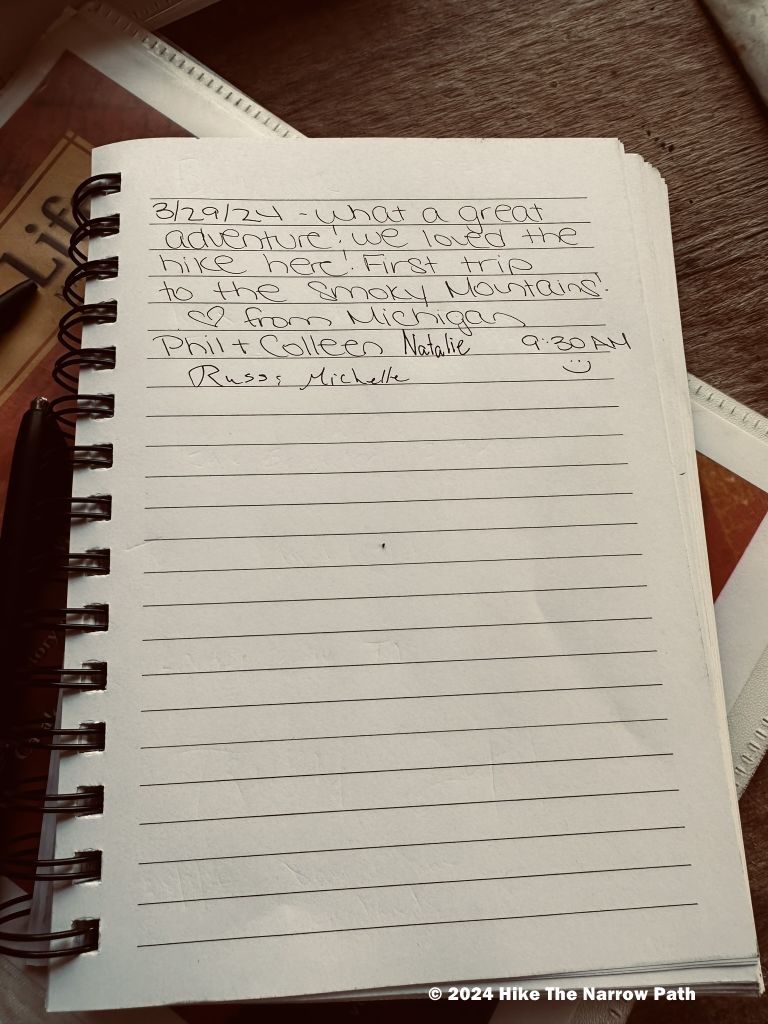 3/29/24 - what a great
adventure! we loved the
hike here! First trip
to the Smoky Mountains!
♡ from Michigan
Phil + Colleen Natalie 9:30 AM
Russ, Michelle :)
Life
© 2024 Hike The Narrow Path